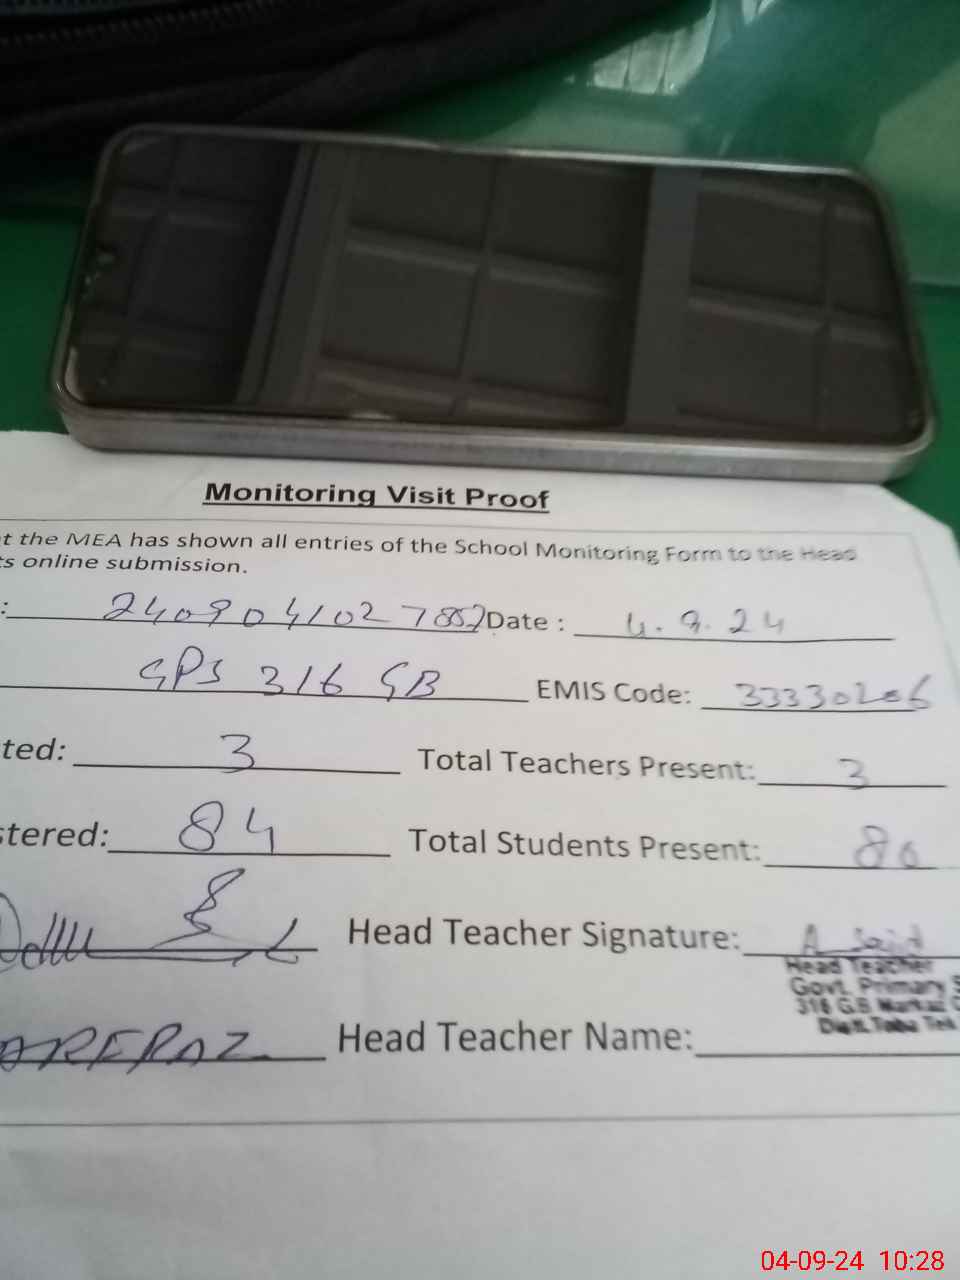 Monitoring Visit Proof
t the MEA has shown all entries of the School Monitoring Form to the Head
ts online submission.
: 24090410278852 Date : 4.9.24
GPS 316 GB EMIS Code: 33330206
ted: 3 Total Teachers Present: 3
stered: 84 Total Students Present: 80
Head Teacher Signature: A Said
Head Teacher
Govt. Primary S
316 G.B Markaz
Distt. Toba Tek
Head Teacher Name:
04-09-24 10:28